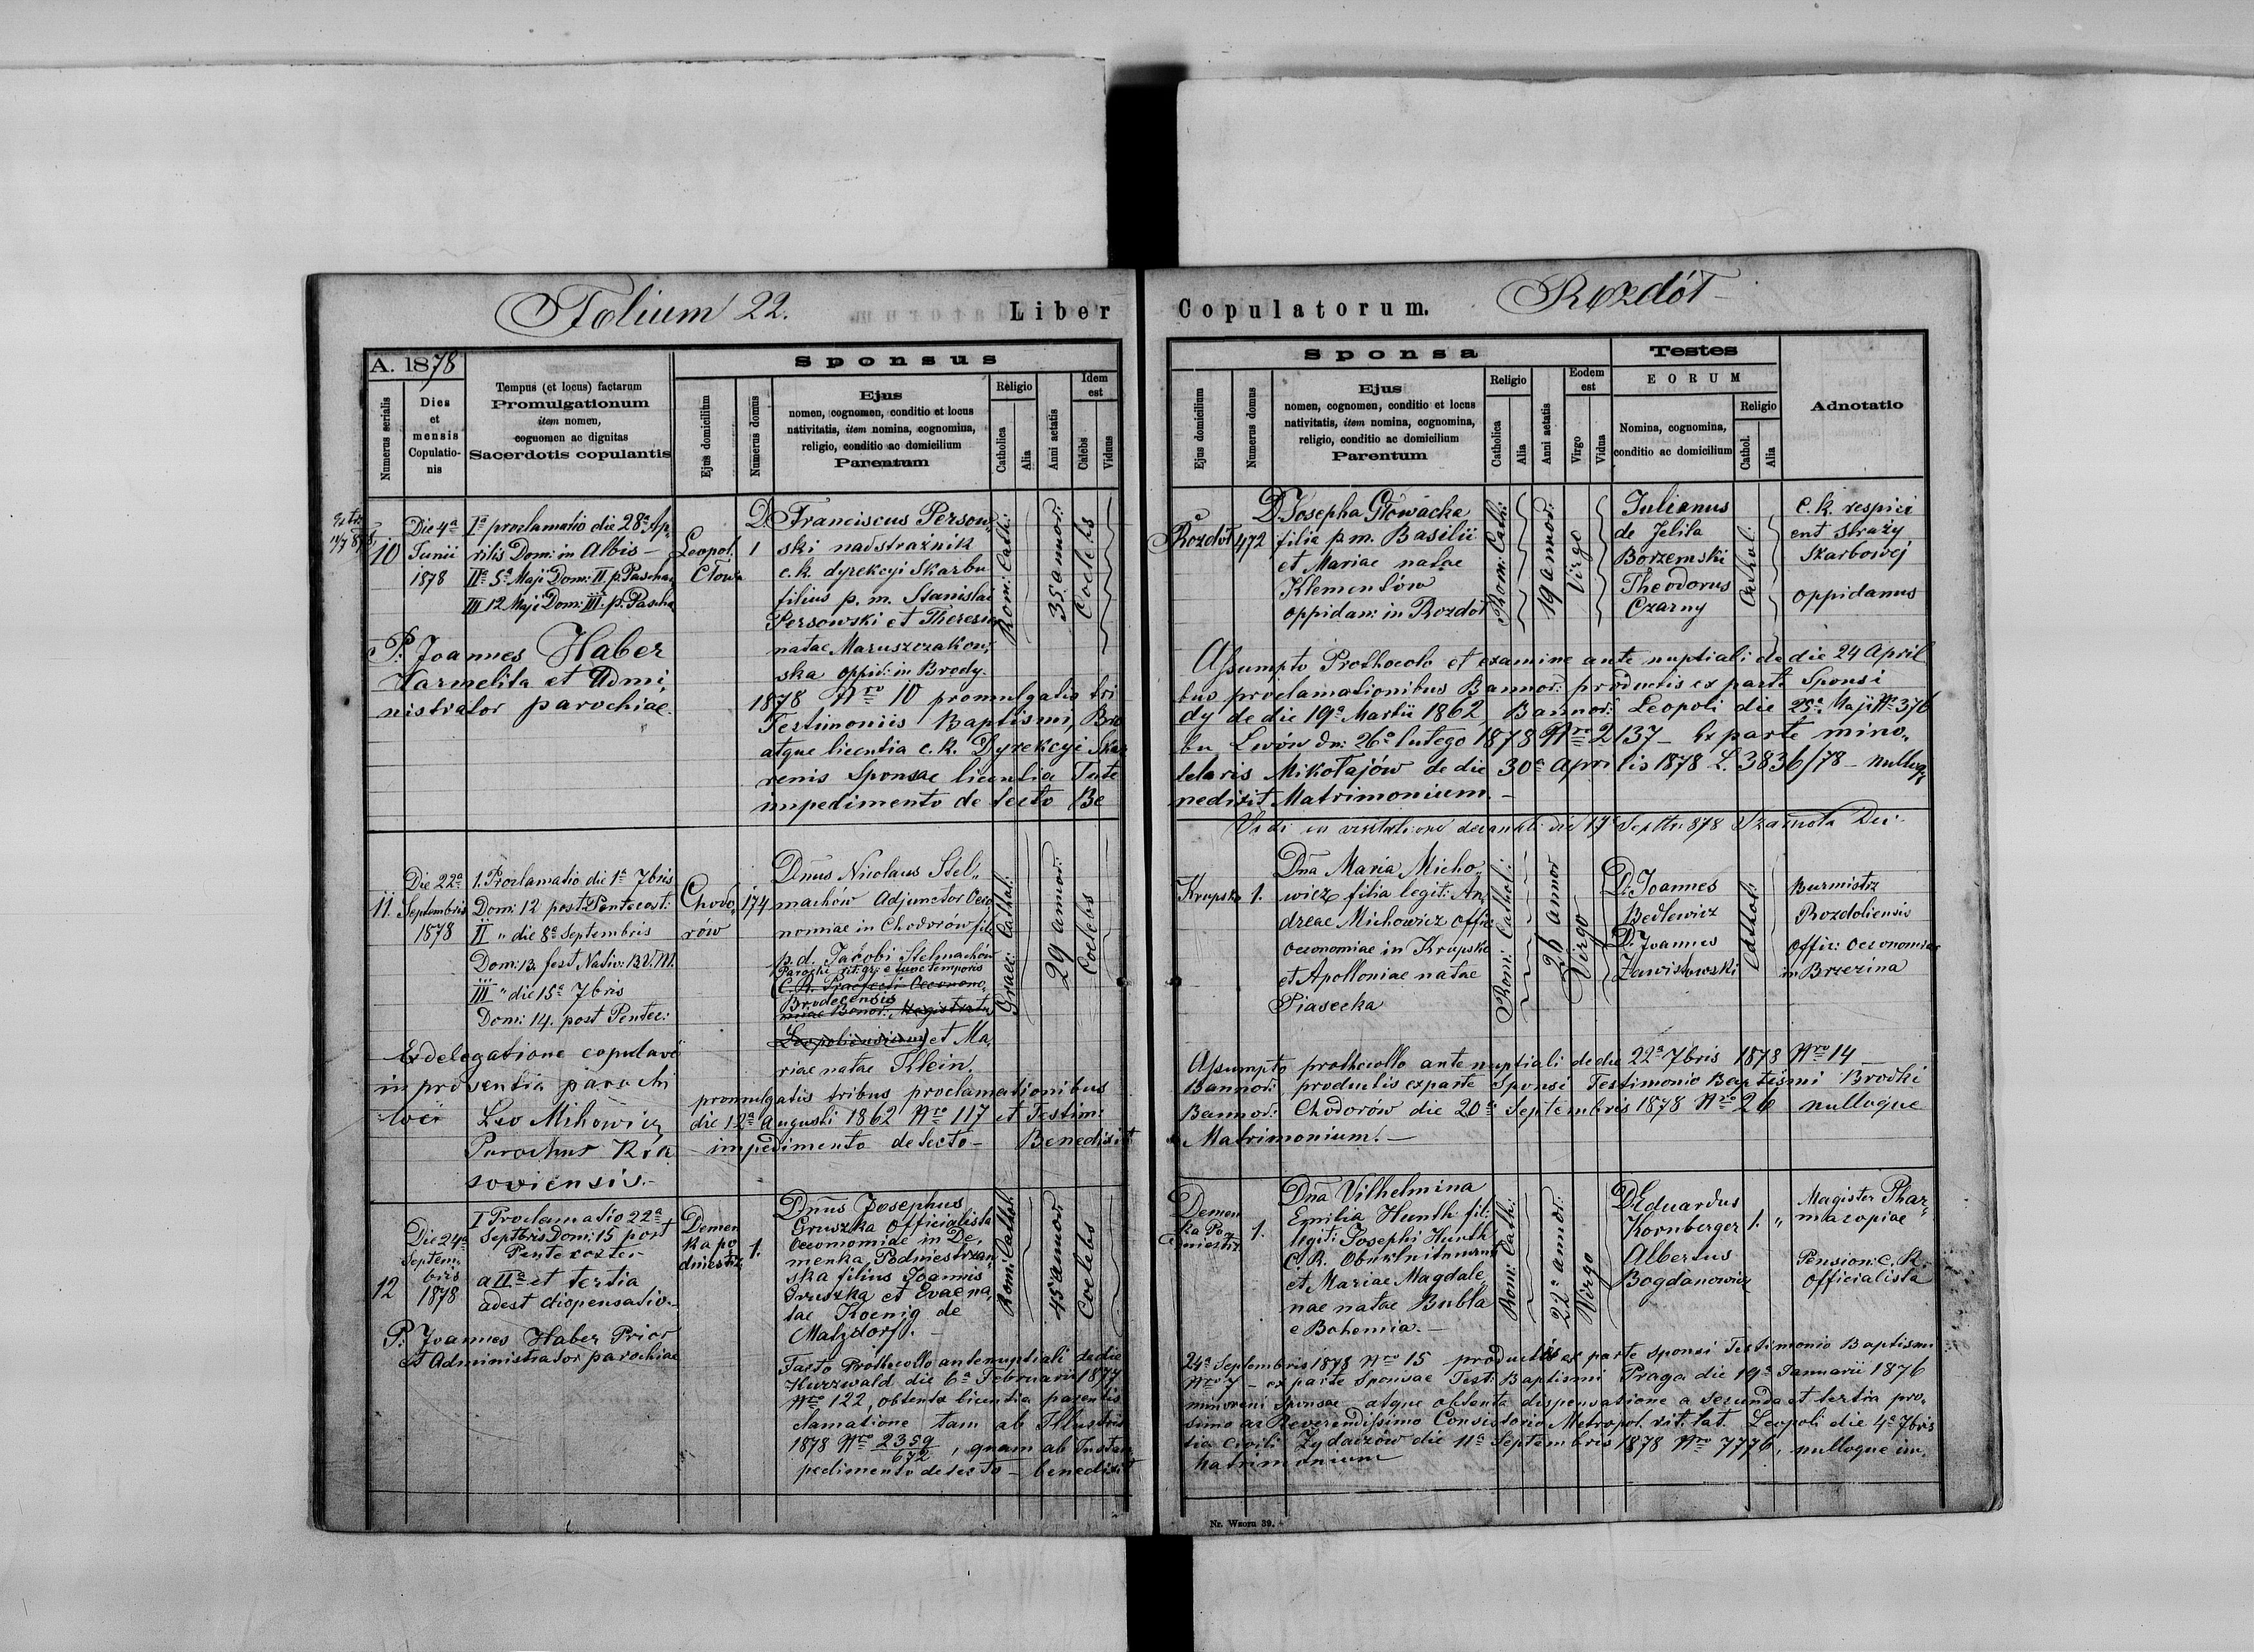 Folium 22.
Liber Copulatorum.
Rozdół
A. 1878
Numerus serialis
Dies et mensis Copulationis
Tempus (et locus) factarum
Promulgationum
item nomen,
cognomen ac dignitas
Sacerdotis copulantis
Sponsus
Ejus domicilium
Numerus domus
Ejus
nomen, cognomen, conditio et locus
nativitatis, item nomina, cognomina,
religio, conditio ac domicilium
Parentum
Religio
Catholica
Alia
Anni aetatis
Idem est
Calebs
Viduus
Sponsa
Ejus domicilium
Numerus domus
Ejus
nomen, cognomen, conditio et locus
nativitatis, item nomina, cognomina,
religio, conditio ac domicilium
Parentum
Religio
Catholica
Alia
Anni aetatis
Eodem est
Virgo
Vidua
Testes
EORUM
Nomina, cognomina,
conditio ac domicilium
Religio
Cathol.
Alia
Adnotatio
10
Die 4a
Junii
1878
Ia proclamatio die 28a Ap
rilis Dom: in Albis –
IIa 5a Maji Dom: II. p. Pascha
III 12 Maji Dom: III. p. Pascha
P: Joannes Haber
Karmelita et Admi
nistrator parochiae.
Leopol.
Cłowa
1
D. Franciscus Persow
ski nadstrażnik
c.k. dyrekcyi Skarbu
filius p. m. Stanislai
Persowski et Theresia
natae Maruszczakow
ska oppid: in Brody.
Rom: Cath:
35 annor:
Coelebs
Rozdół
472
D. Josepha Głowacka
filia p m. Basilii
et Mariae natae
Klementów
oppidan: in Rozdół
Rom: Cath:
19 annor:
Virgo
Julianus
de Jelita
Borzemski
Theodorus
Czarny
Cathol:
C. k. respici
ent straży
Skarbowej
oppidanus
Assumpto Prothocolo et examine ante nuptiali de die 24 April
1878 Nro 10 promulgatis tri
bus proclamationibus Bannor: productis ex parte Sponsi
Testimoniis Baptismi, Bro
dy de die 19a Martii 1862, Bannor: Leopoli die 28a Maji No 376
atque licentia c. k. Dyrekcyi Skar
bu Lwów dn: 26o lutego 1878 Nro 2137 – Ex parte mino
renis Sponsae licentia Tute
telaris Mikołajów de die 30a Aprilis 1878 L. 3836/78 – nulloq
impedimento detecto Be
nedixit Matrimonium. –
Vidi in visitatione decanali die 17 Septbr 878
11.
Die 22a
Septembris
1878
1. Proclamatio die 1a 7bris
Dom: 12 post Pentecost:
II " die 8a Septembris
Dom: 13. fest Nativ: B.V.M.
III " die 15a 7bris
Dom: 14. post Pentec:
Ex delegatione copulavi
in presentia parochi
loci Leo Mihowicz
Parochus
soviensis. –
Chodo
rów
174
Dnus Nicolaus Stel
machów Adjunctor Oeco
nomiae in Chodorów fil
p.d. Jacobi Stelmachów
Parochi rit: gr: e tunc temporis
C. R. Praefecti Oecono
Brodecensis
miae Bonor: Magistratu
Leopoliensium et Ma
riae natae Klein.
Graec: Cathol:
29 annor:
Coelebs
Krupsko
1.
Dna Maria Micho
wicz filia legit: An
dreae Michowicz Offic
oeconomiae in Krupsko
et Apolloniae natae
Piasecka
Rom: Cathol:
annor
Virgo
D. Joannes
Bedlewicz
D. Joannes
Zawistowski
Cathol:
Burmistrz
Rozdoliensis
Offic: oeconomiae
in Brzezina
Assumpto prothocollo ante nuptiali de die 22a 7bris 1878 Nro 14
promulgatis tribus proclamationibus
Bannor: productis ex parte Sponsi Testimonio Baptismi Brodki
die 12a Augusti 1862 Nro 117 et Testim:
Bannor: Chodorów die 20a Septembris 1878 Nro 26 nulloque
impedimento detecto – Benedixit
Matrimonium. –
12
Die 24a
Septem
bris
1878
I Proclamatio 22a
Septbris Dom: 15 post
Pentecoste –
a IIa et tertia
adest dispensatio –
P: Joannes Haber Prior
et Administrator parochiae
Demen
ka po
dniestrz
1.
Dnus Josephus
Gruszka officialista
oeconomiae in De
menka Podniestrzan
ska filius Joannis
Gruszka et Evae na
tae Koenig de
Matzdorf. –
Rom: Cathol:
45 annor:
Coelebs
Demen
ka Po
dniestrz
1.
Dna Vilhelmina
Emilia Hunth fil:
legit: Josephi Hunth
C. R.
et Mariae Magdale
nae natae Bubla
e Bohemia. –
Rom: Cath:
22a annor:
Virgo
D. Eduardus
Kornberger
Albertus
Bogdanowicz
1.
"
Magister Phar
macopiae
Pension: C. R.
Officialista
Facto Prothocollo antenuptiali de die
24a Septembris 1878 Nro 15 productis ex parte sponsi Testimonio Baptismi
Kurzwald die 6a Februarii 1877
Nro 7 – ex parte Sponsae Test: Baptismi Praga die 19a Januarii 1876
Nro 122, obtenta licentia parentis
minoreni Sponsae atque obtenta dispensatione a secunda et tertia pro
clamatione tam ab Illustris
simo ac Reverendissimo Consistorio Metropol. rit. lat. Leopoli die 4a 7bris
1878 Nro 2359/672, quam ab Instan
tia Civili Żydaczów die 11a Septembris 1878 Nro 7776, nulloque im
pedimento detecto – benedixit
Matrimonium
Nr. Wzoru 39.